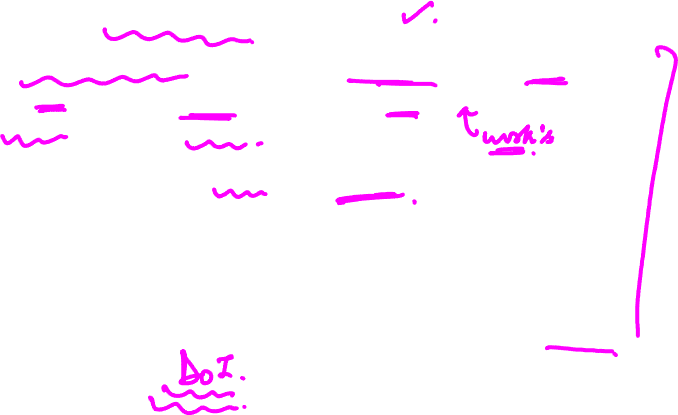 work's.
DoI.